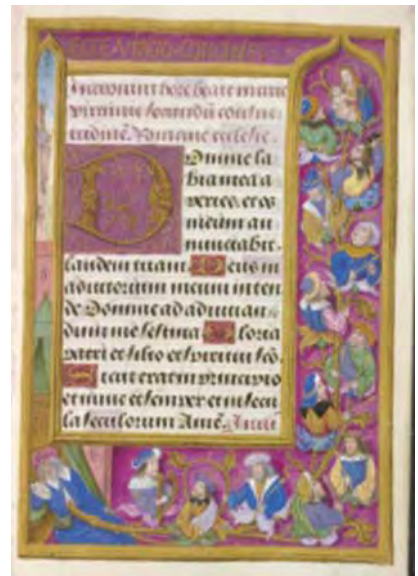 ECCE VIRGO CONCIPI
Incipiunt hore beate marie
virginis secundū consue
tudinē Romane ecclesie.
Domine la
bia mea a
peries. et os
meum an
nunciabit
laudem tuam. Deus in
adiutorium meum inten
de Domine ad adiuuan
dum me festina Gloria
patri et filio et spiritui scō.
Sicut erat in principio
et nunc et semper et in secu
la seculorum Amē.